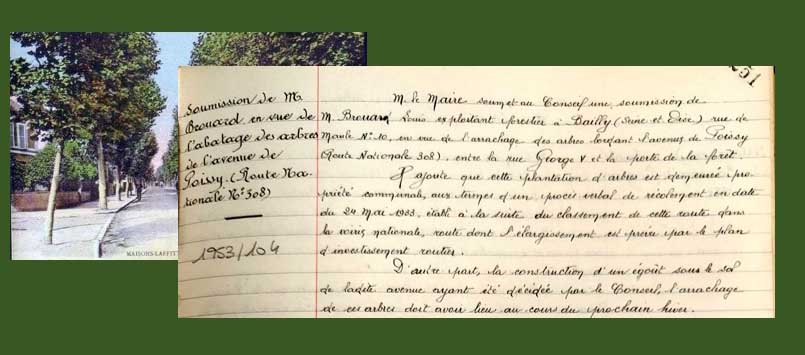 MAISONS-LAFFITT
51
Soumission de M.
Brouard, en vue de
l'abatage des arbres
de l'avenue de
Poissy. (Route Na-
tionale N° 308)
1953/104
M. le Maire soumet au Conseil une soumission de
M. Brouard Louis exploitant forestier à Bailly (Seine et Oise) rue de
Maule N° 10, en vue de l'arrachage des arbres bordant l'avenue de Poissy
(Route Nationale 308), entre la rue George V et la porte de la forêt.
Il ajoute que cette plantation d'arbres est demeurée pro-
priété communale, aux termes d'un procès verbal de récolement en date
du 24 Mai 1933, établi à la suite du classement de cette route dans
la voirie nationale, route dont l'élargissement est prévu par le plan
d'investissement routier.
D'autre part, la construction d'un égoût sous le sol
de ladite avenue ayant été décidée par le Conseil, l'arrachage
de ces arbres doit avoir lieu au cours du prochain hiver.